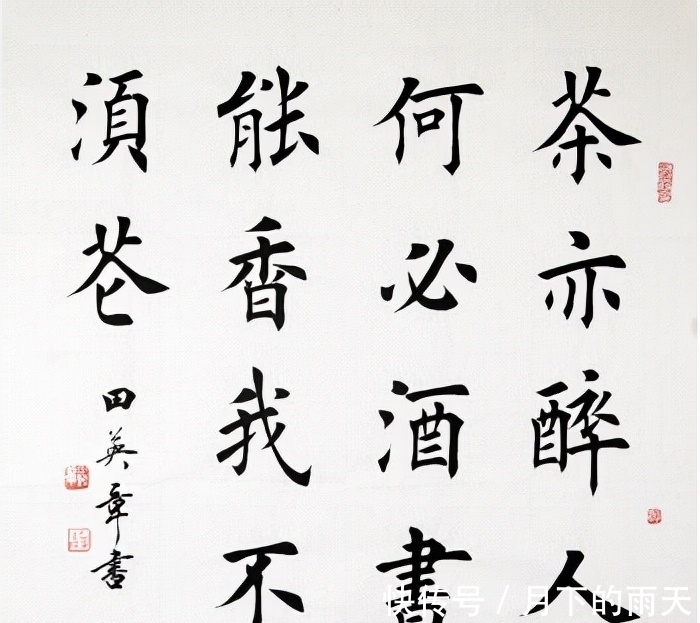 茶亦醉人
何必酒書
能香我不
湏花
田英章書
快传号 / 月下的雨天